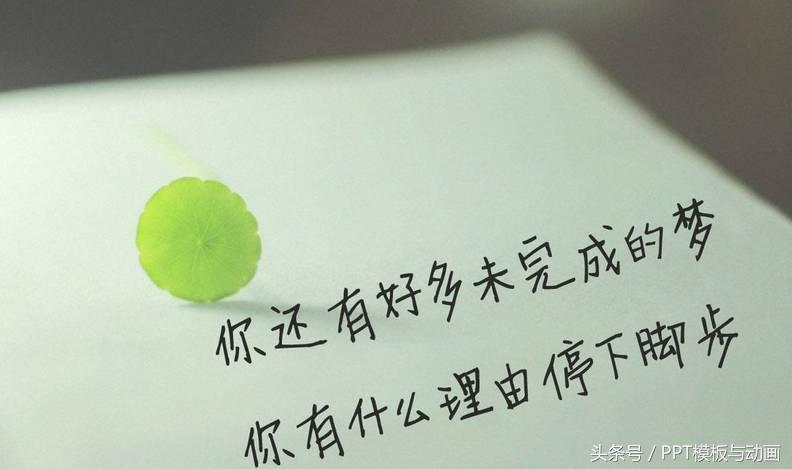 你还有好多未完成的梦
你有什么理由停下脚步
头条号／PPT模板与动画